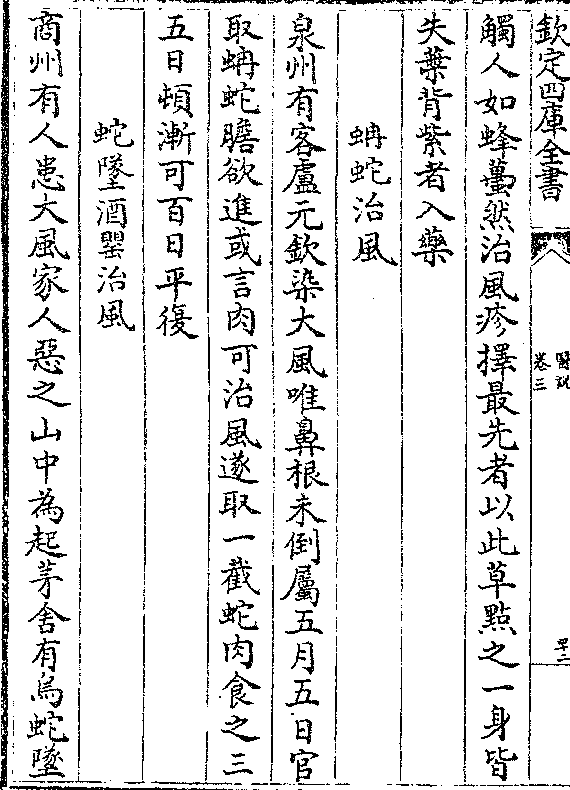 欽定四庫全書
醫説
卷三
四十二
觸人如蜂蠆然治風疹擇最先者以此草㸃之一身皆
失葉背紫者入藥
蚺蛇治風
泉州有客盧元欽染大風唯鼻根未倒屬五月五日官
取蚺蛇膽欲進或言肉可治風遂取一截蛇肉食之三
五日頓漸可百日平復
蛇墜酒甖治風
商州有人患大風家人惡之山中為起茅舍有烏蛇墜